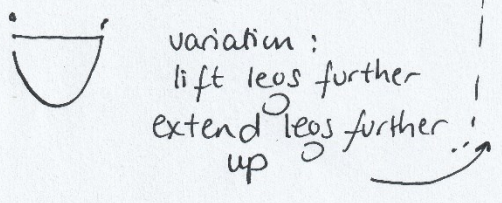 variation :
lift legs further
extend legs further
up